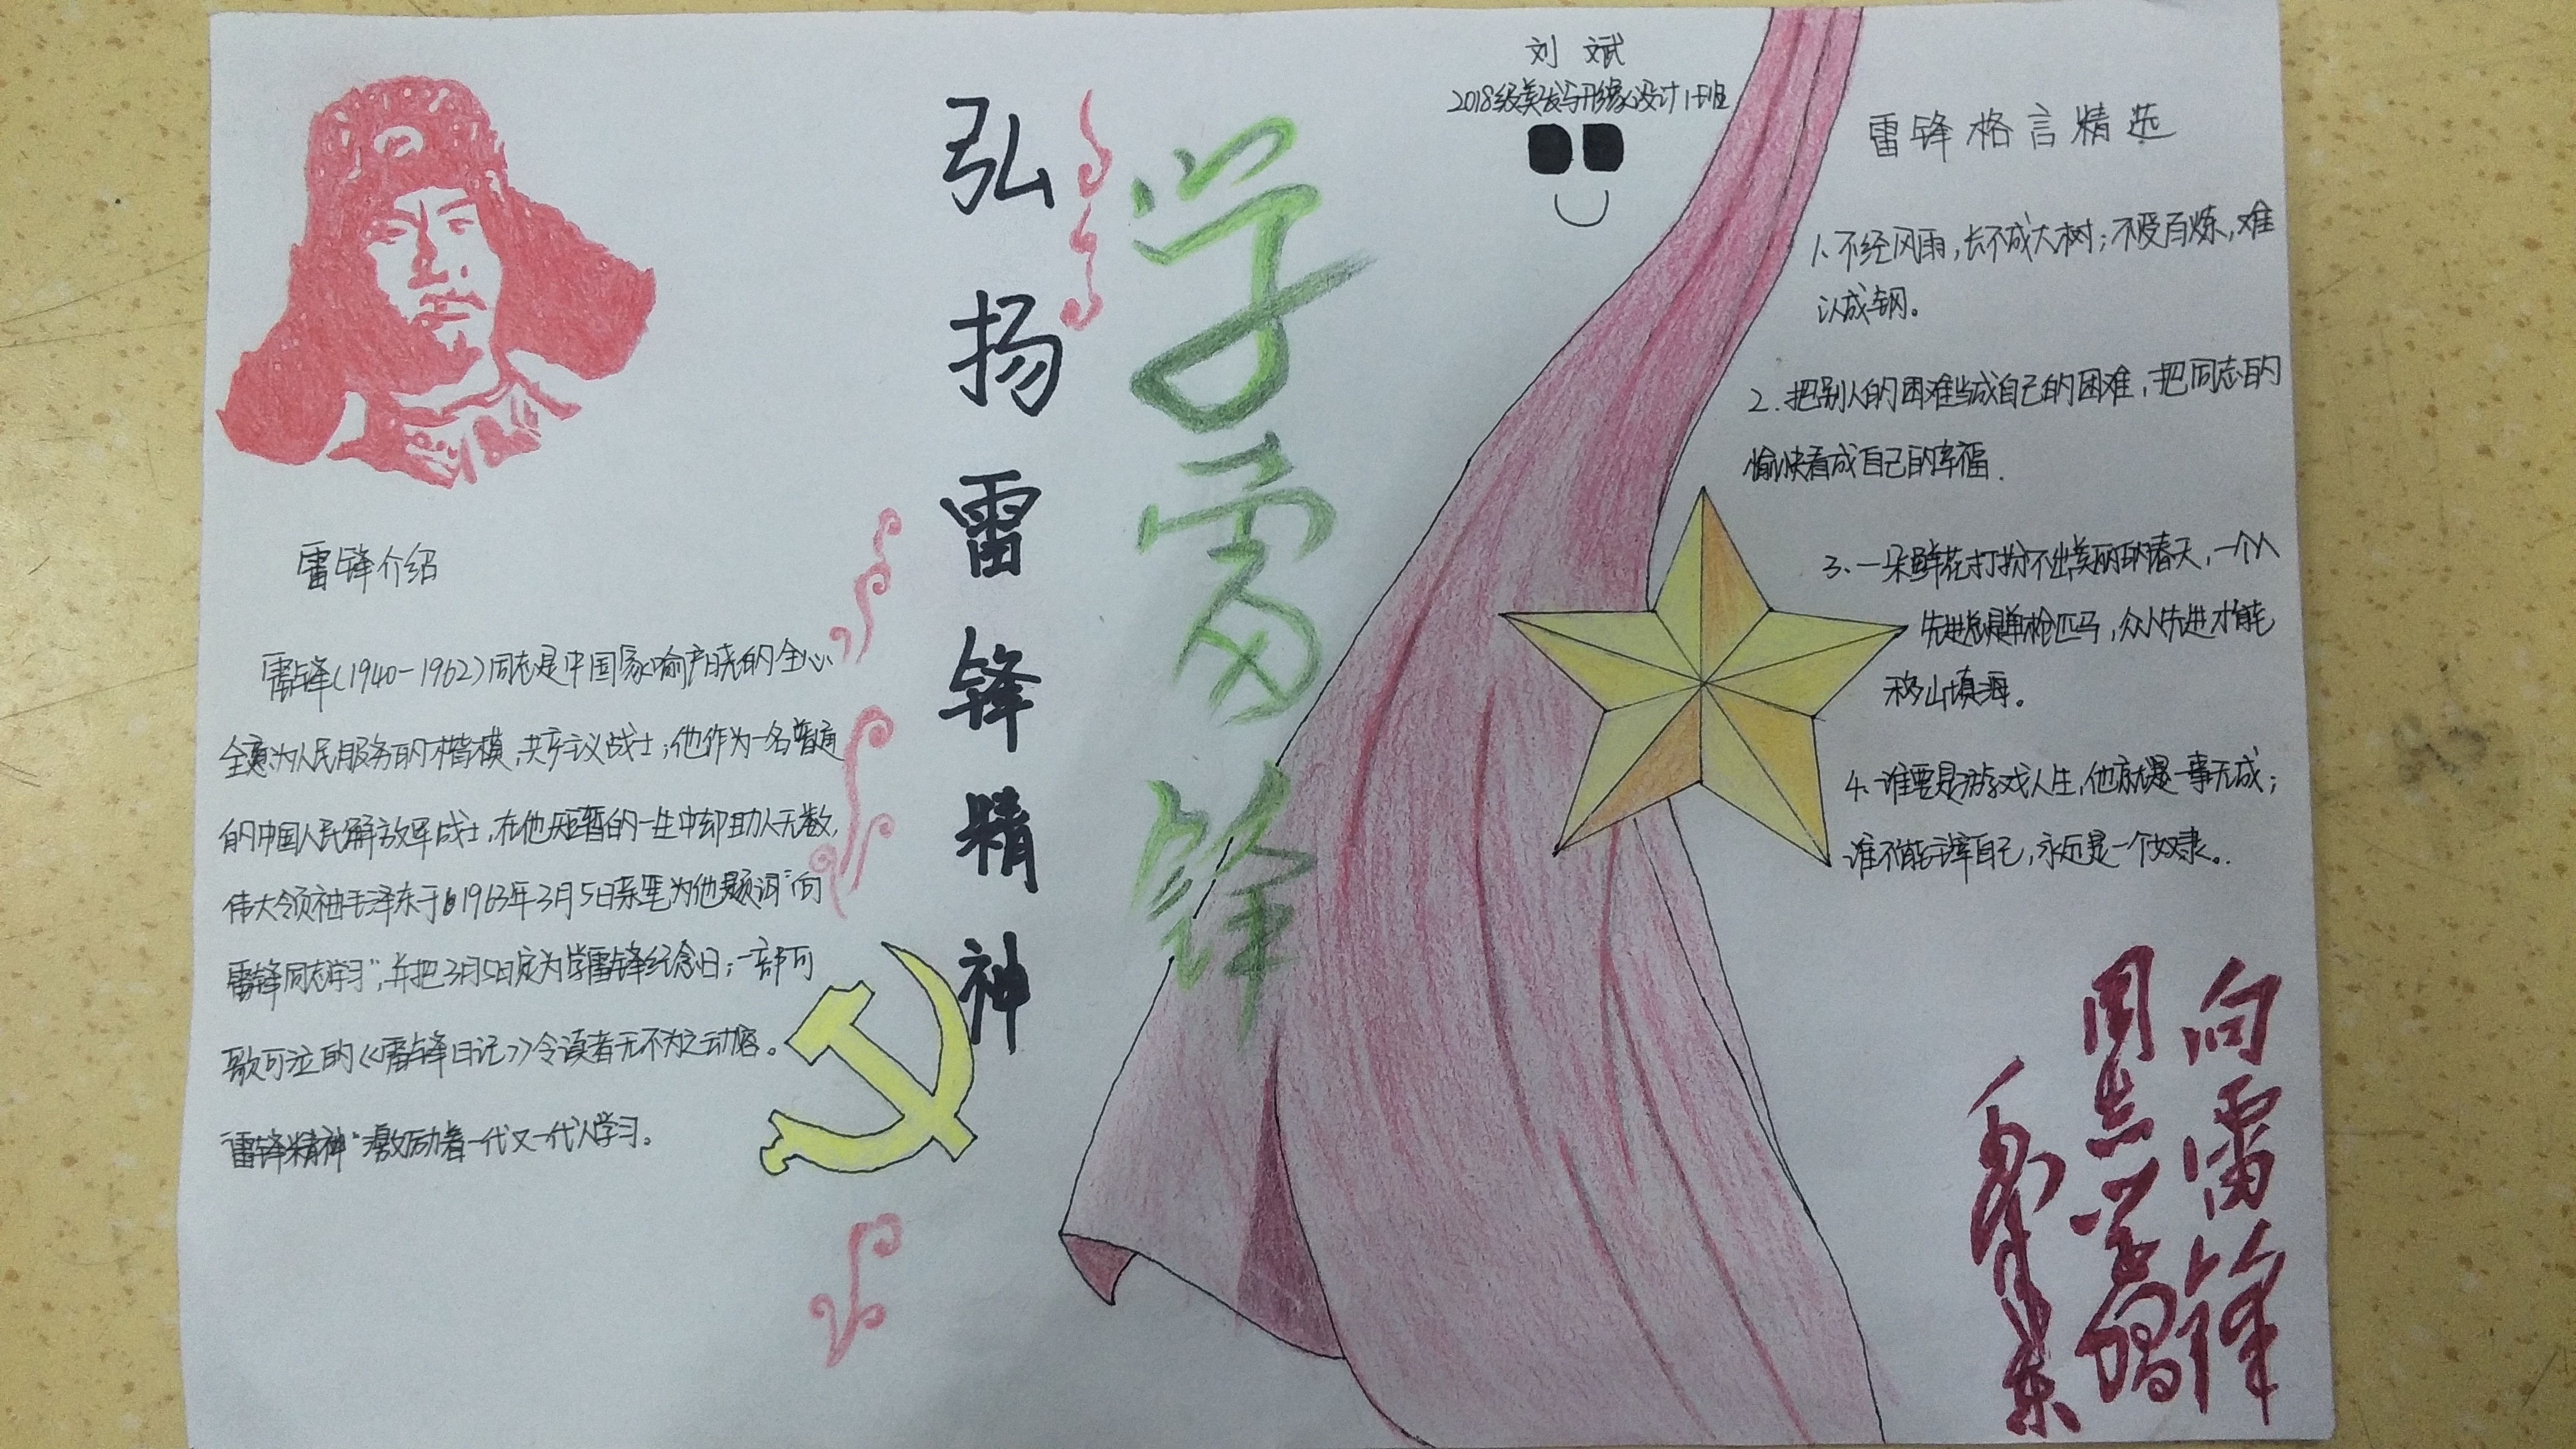 雷锋介绍
雷锋(1940-1962)同志是中国家喻户晓的全心
全意为人民服务的楷模,共产主义战士;他作为一名普通
的中国人民解放军战士,在他短暂的一生中却助人无数,
伟大领袖毛泽东于1963年3月5日亲笔为他题词"向
雷锋同志学习",并把3月5日定为学雷锋纪念日;一部可
歌可泣的《雷锋日记》令读者无不为之动容。
"雷锋精神"激励着一代又一代人学习。
弘扬雷锋精神
学雷锋
刘 斌
2018级美发与形象设计1班
雷锋格言精选
1、不经风雨,长不成大树;不受百炼,难
以成钢。
2.把别人的困难当成自己的困难,把同志的
愉快看成自己的幸福.
3、一朵鲜花打扮不出美丽的春天,一个人
先进总是单枪匹马,众人先进才能
移山填海。
4、谁要是游戏人生,他就是一事无成;
谁不能主宰自己,永远是一个奴隶。.
向雷锋
同志学习
毛泽东